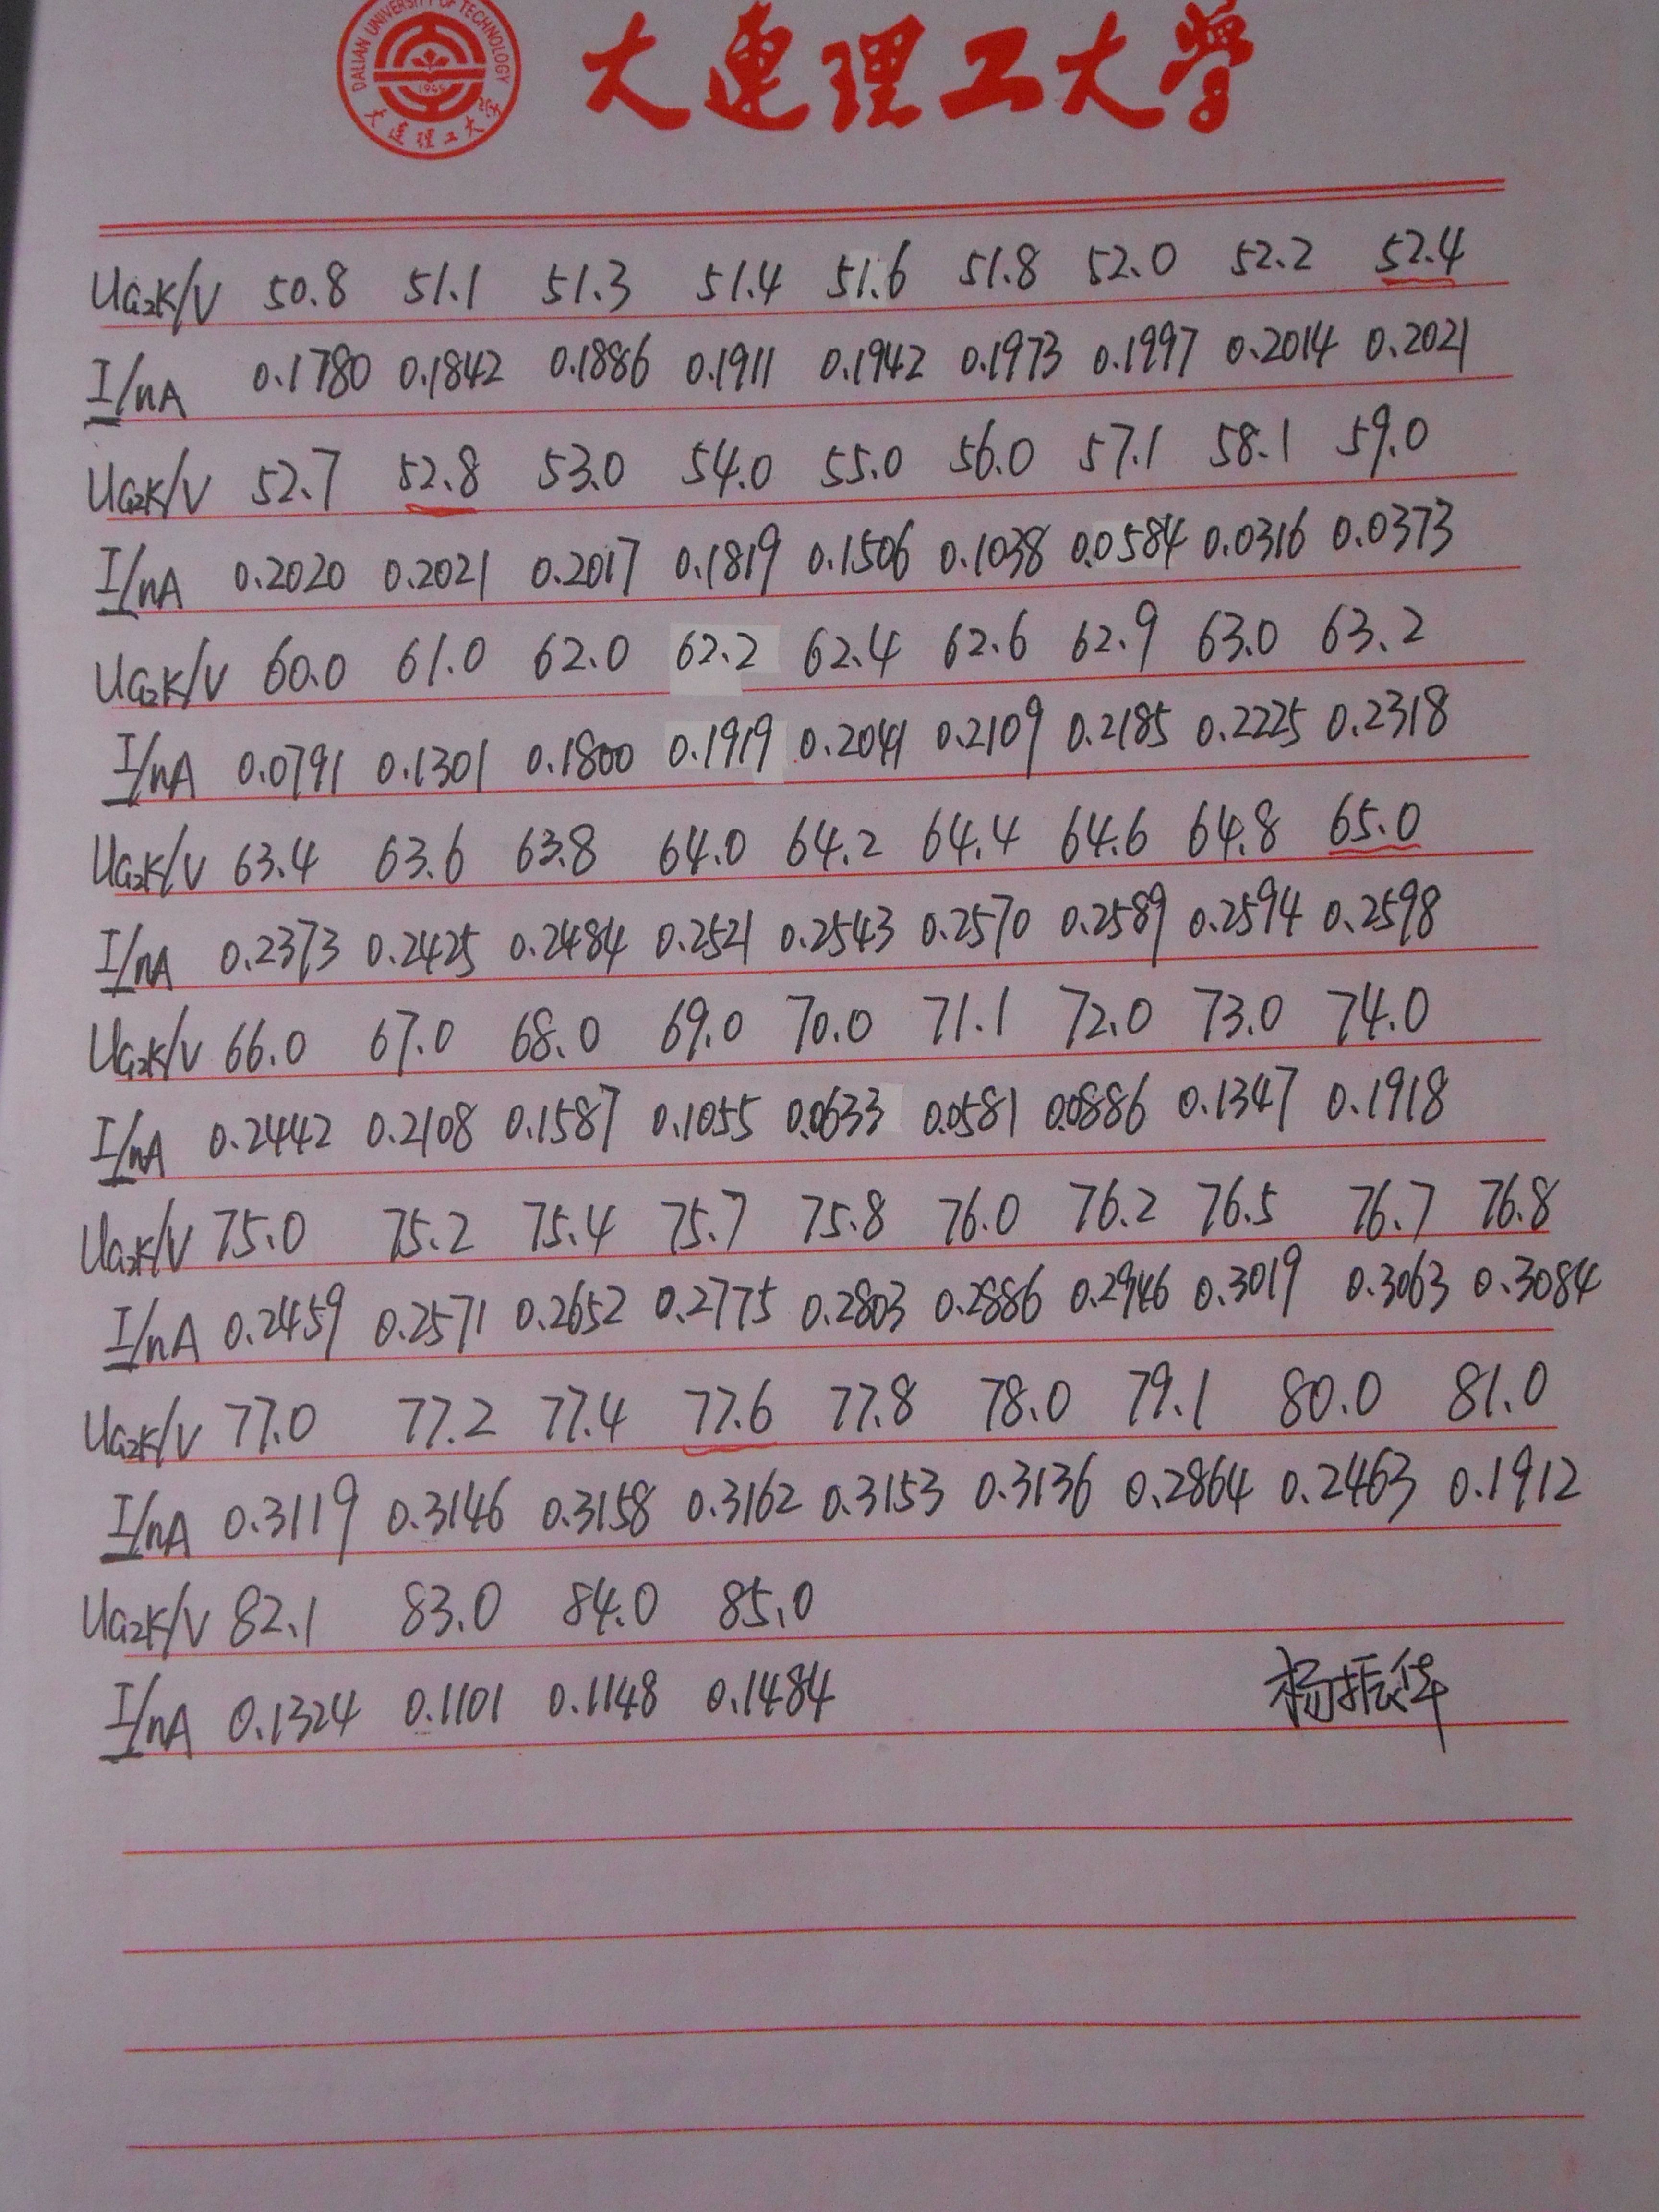 DALIAN UNIVERSITY OF TECHNOLOGY
1949
大连理工大学
大連理工大学
UG2K/V 50.8 51.1 51.3 51.4 51.6 51.8 52.0 52.2 52.4
I/nA 0.1780 0.1842 0.1886 0.1911 0.1942 0.1973 0.1997 0.2014 0.2021
UG2K/V 52.7 52.8 53.0 54.0 55.0 56.0 57.1 58.1 59.0
I/nA 0.2020 0.2021 0.2017 0.1819 0.1506 0.1038 0.0584 0.0316 0.0373
UG2K/V 60.0 61.0 62.0 62.2 62.4 62.6 62.9 63.0 63.2
I/nA 0.0791 0.1301 0.1800 0.1919 0.2041 0.2109 0.2185 0.2225 0.2318
UG2K/V 63.4 63.6 63.8 64.0 64.2 64.4 64.6 64.8 65.0
I/nA 0.2373 0.2425 0.2484 0.2521 0.2543 0.2570 0.2589 0.2594 0.2598
UG2K/V 66.0 67.0 68.0 69.0 70.0 71.1 72.0 73.0 74.0
I/nA 0.2442 0.2108 0.1587 0.1055 0.0633 0.0581 0.0886 0.1347 0.1918
UG2K/V 75.0 75.2 75.4 75.7 75.8 76.0 76.2 76.5 76.7 76.8
I/nA 0.2459 0.2571 0.2652 0.2775 0.2803 0.2886 0.2946 0.3019 0.3063 0.3084
UG2K/V 77.0 77.2 77.4 77.6 77.8 78.0 79.1 80.0 81.0
I/nA 0.3119 0.3146 0.3158 0.3162 0.3153 0.3136 0.2864 0.2463 0.1912
UG2K/V 82.1 83.0 84.0 85.0
I/nA 0.1324 0.1101 0.1148 0.1484
杨振华